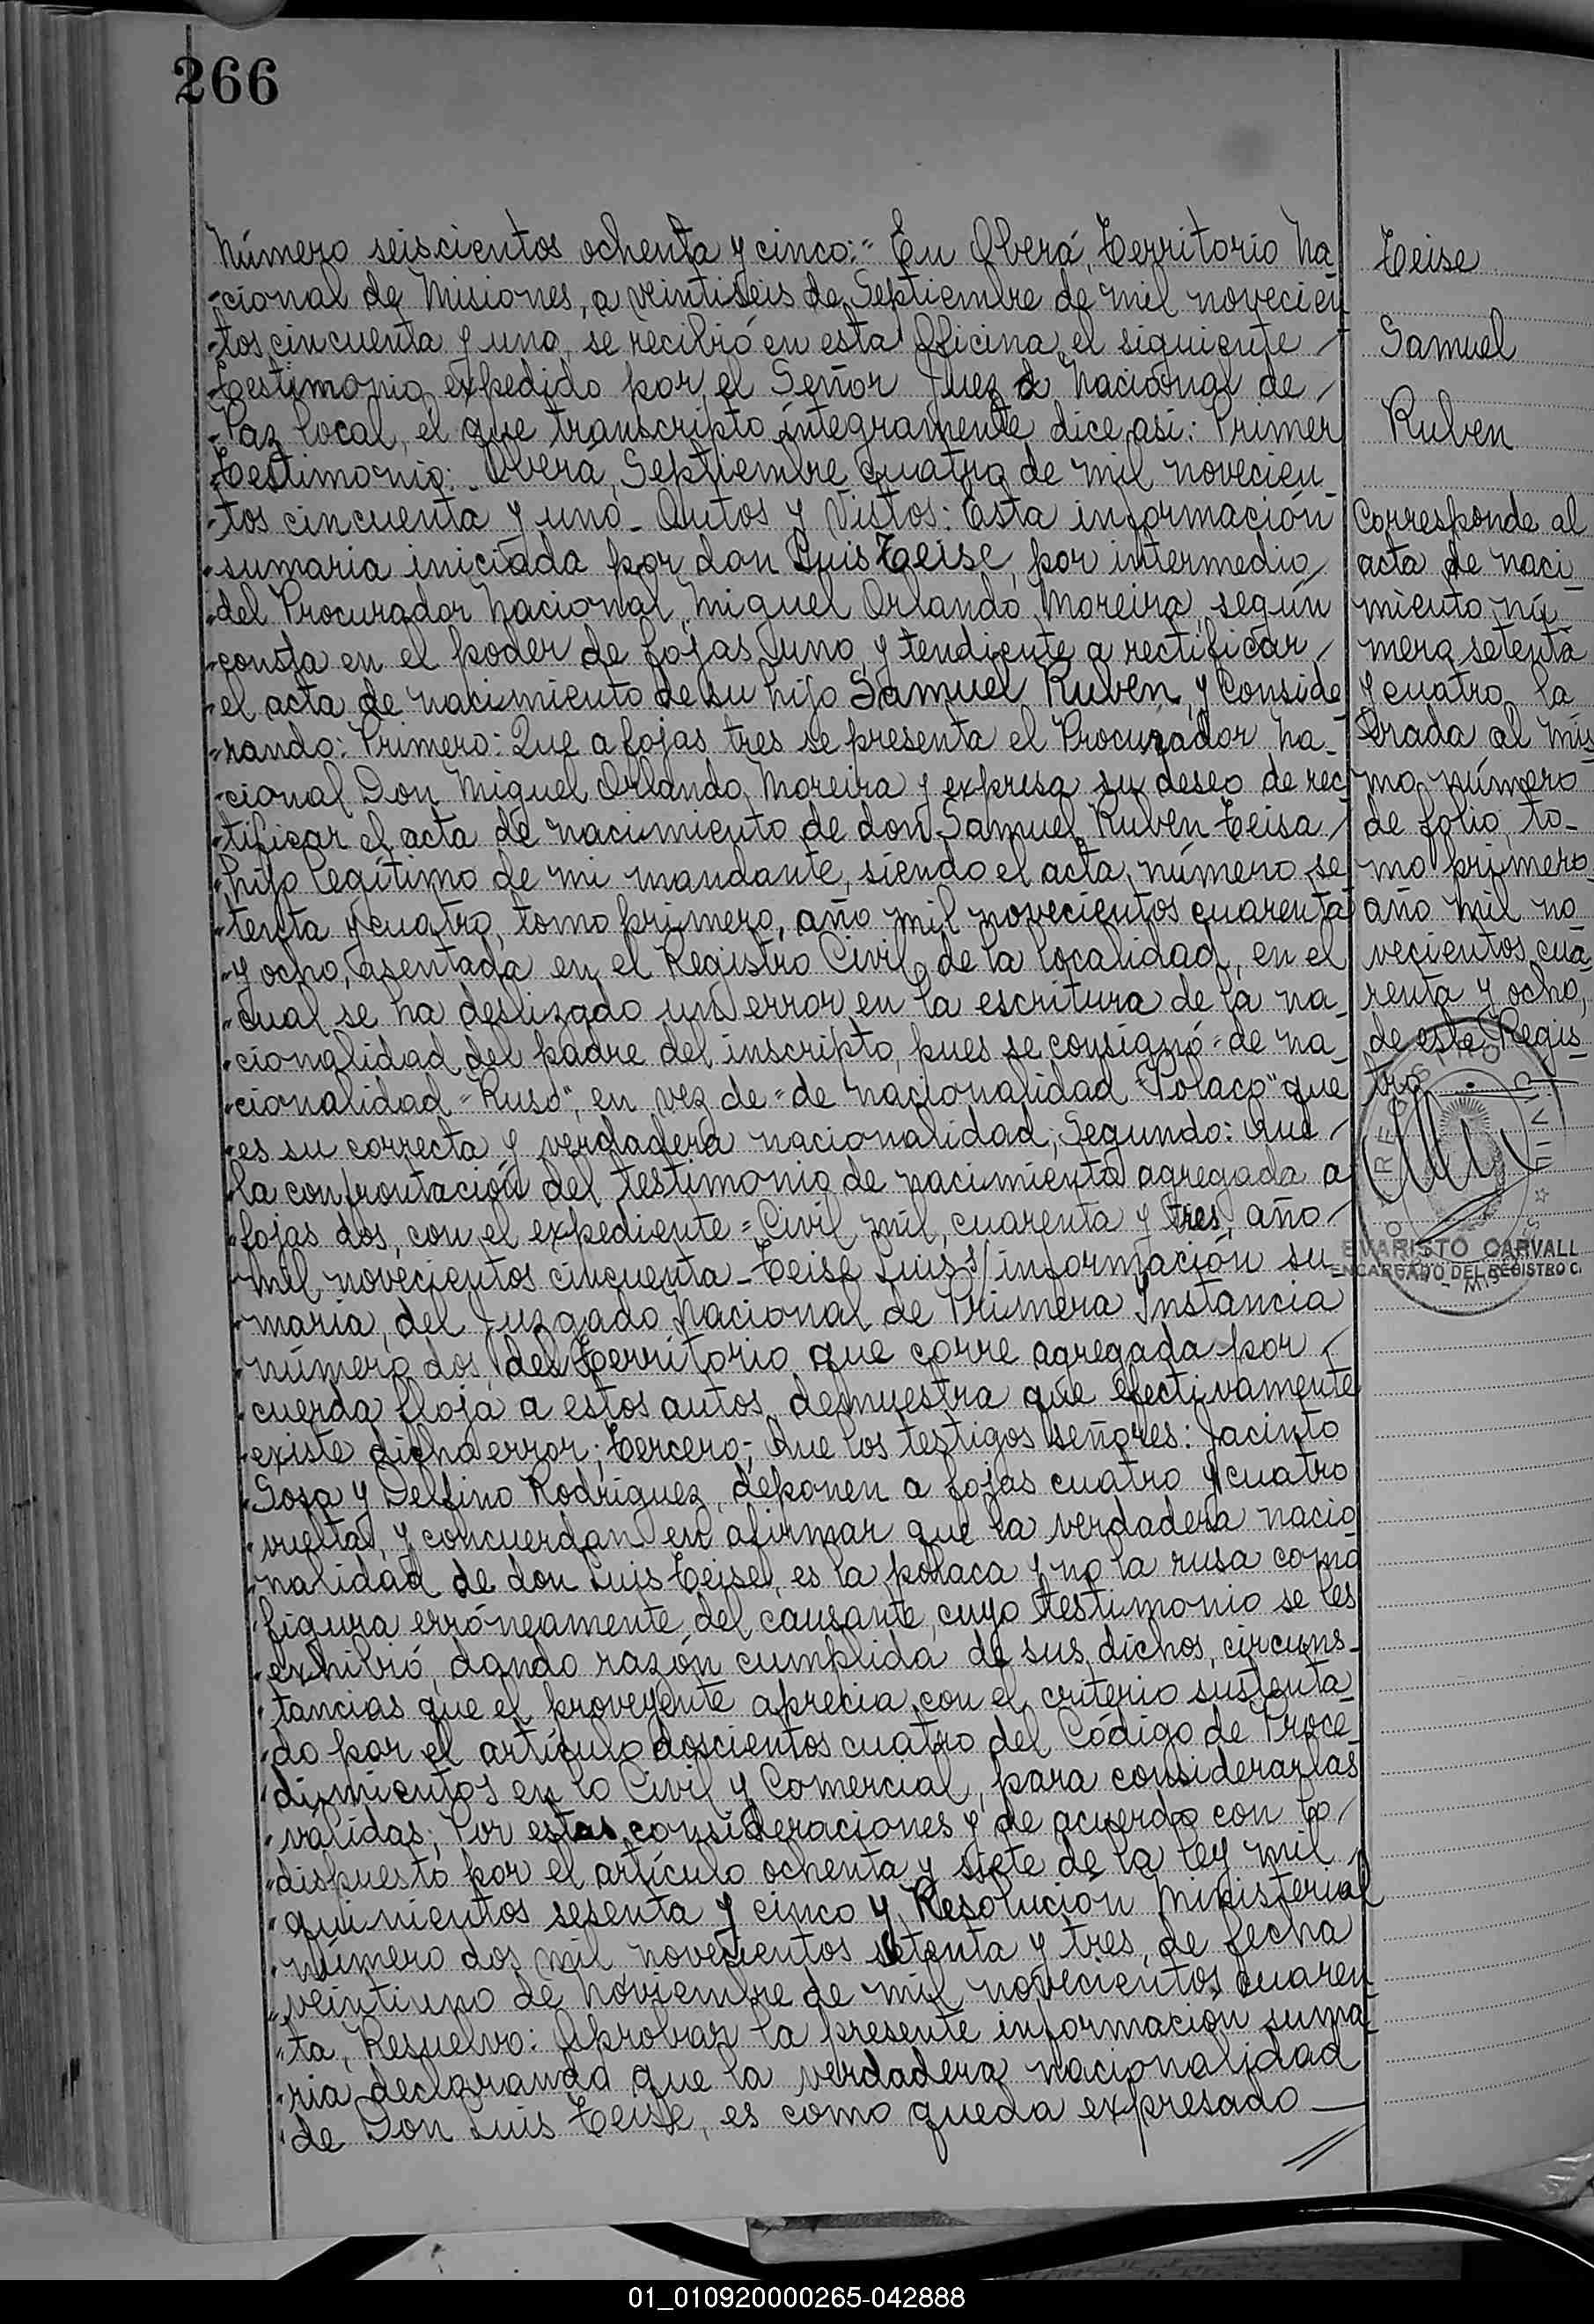 266
Número seiscientos ochenta y cinco:" En Oberá, Territorio Na_
-cional de Misiones, a veintiseis de Septiembre de mil novecien
-tos cincuenta y uno, se recibió en esta Oficina, el siguiente /
-testimonio expedido por el Señor Juez Nacional de /
-Paz local, el que transcripto íntegramente, dice asi: Primer
Testimonio: Oberá, Septiembre cuatro de mil novecien_
-tos cincuenta y uno_ Autos y Vistos: Esta información
sumaria iniciada por don Luis Teise, por intermedio /
del Procurador Nacional, Miguel Orlando Moreira, según
consta en el poder de fojas uno, y tendiente a rectificar, /
el acta de nacimiento de su hijo Samuel Ruben, y Conside
rando: Primero: Que a fojas tres se presenta el Procurador Na_
-cional Don Miguel Orlando Moreira y expresa su deseo de rec
tificar el acta de nacimiento de don Samuel Ruben Teisa /
hijo legítimo de mi mandante, siendo el acta, número se
tenta y cuatro, tomo primero, año mil novecientos cuarenta
y ocho, asentada en el Registro Civil de la localidad, en el
cual se ha deslizado un error en la escritura de la na_
cionalidad del padre del inscripto, pues se consignó "de na_
cionalidad "Ruso", en vez de "de nacionalidad "Polaco" que
es su correcta y verdadera nacionalidad; Segundo: Que /
la confrontación del testimonio de nacimiento agregada a
fojas dos, con el expediente "Civil mil, cuarenta y tres, año /
mil novecientos cincuenta_ Teise Luis s/ información su
maria, del Juzgado Nacional de Primera Instancia
número dos, del Territorio que corre agregada por /
cuerda floja a estos autos, demuestra que efectivamente
existe dicho error; Tercero; Que los testigos señores: Jacinto
Sosa y Delfino Rodriguez, deponen a fojas cuatro y cuatro
vuelta, y concuerdan en afirmar que la verdadera nacio
nalidad de don Luis Teise, es la polaca y no la rusa como
figura erróneamente del causante, cuyo testimonio se les
exhibió, dando razón cumplida de sus dichos, circuns_
tancias que el proveyente aprecia con el criterio sustenta_
do por el artículo doscientos cuatro del Código de Proce_
dimientos en lo Civil y Comercial, para considerarlas
válidas; Por estas consideraciones y de acuerdo con lo /
dispuesto por el artículo ochenta y siete de la ley mil /
quinientos sesenta y cinco y Resolución Ministerial
número dos mil novecientos setenta y tres, de fecha
veintiuno de Noviembre de mil novecientos cuaren
ta, Resuelvo: Aprobar la presente información suma
ria declarando que la verdadera nacionalidad
de Don Luis Teise, es como queda expresado —
//
Teise
Samuel
Ruben
Corresponde al
acta de naci_
miento nú_
mero setenta
y cuatro, la
brada al mis_
mo número
de folio, to_
mo primero_
año mil no
vecientos cua
renta y ocho,
de este Regis_
tro
REGISTRO CIVIL
MISIONES
EVARISTO CARVALL
ENCARGADO DEL REGISTRO C.
01_010920000265-042888